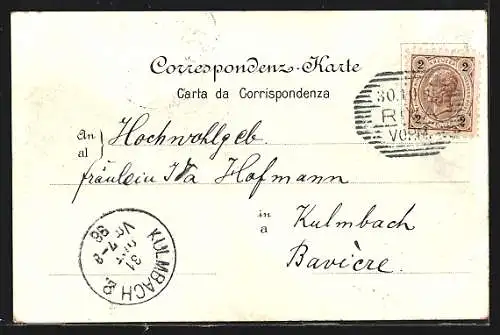 Correspondenz-Karte
Carta da Corrispondenza
An
al
Hochwohlgeb.
fräulein Ida Hofmann
in
a
Kulmbach
Bavière.
2 2
2 2
30.10
VORM
KULMBACH
31
OCT
7-8
98